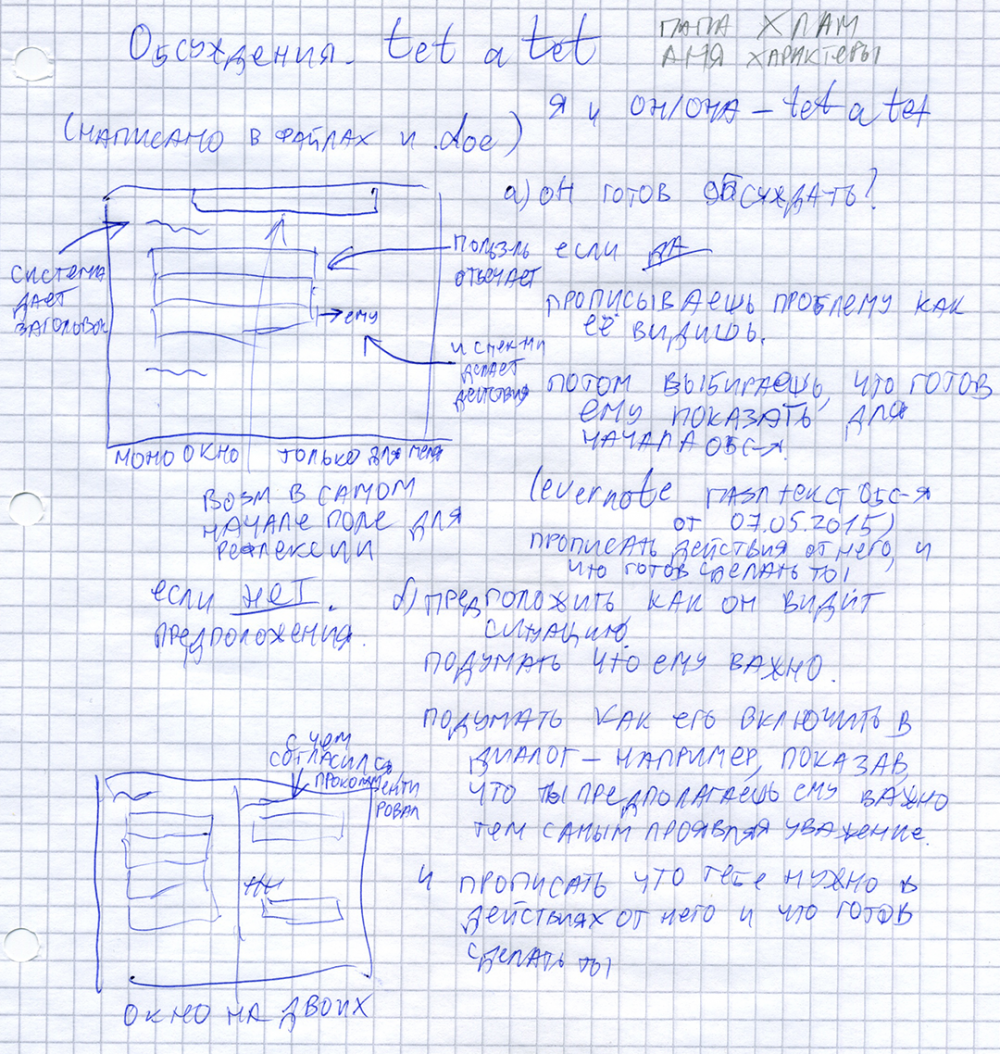 Обсуждения. tet a tet
ПАПА ХЛАМ
АНЯ ХАРАКТЕРЫ
Я и ОН/ОНА – tet a tet
(НАПИСАНО В ФАЙЛАХ И .doc)
а) ОН ГОТОВ ОБСУЖДАТЬ?
СИСТЕМА
ДАЕТ
ЗАГОЛОВОК
ОТВЕЧАЕТ
→ ему
И
ДЕЛАЕТ
ДЕЙСТВИЯ
если ДА
ПРОПИСЫВАЕШЬ ПРОБЛЕМУ КАК
ЕЁ ВИДИШЬ.
ПОТОМ ВЫБИРАЕШЬ, ЧТО ГОТОВ
ЕМУ ПОКАЗАТЬ ДЛЯ
НАЧАЛА ОБС-Я.
МОНО ОКНО ТОЛЬКО ДЛЯ МЕНЯ
ВОЗМ В САМОМ
НАЧАЛЕ ПОЛЕ ДЛЯ
РЕФЛЕКСИИ
(evernote ТЕКСТ ОБС-Я
ОТ 07.05.2015)
ПРОПИСАТЬ ДЕЙСТВИЯ ОТ НЕГО, И
ЧТО ГОТОВ СДЕЛАТЬ ТЫ
если НЕТ.
ПРЕДПОЛОЖЕНИЯ.
б) ПРЕДПОЛОЖИТЬ КАК ОН ВИДИТ
СИТУАЦИЮ.
ПОДУМАТЬ ЧТО ЕМУ ВАЖНО.
ПОДУМАТЬ КАК ЕГО ВКЛЮЧИТЬ В
ДИАЛОГ – НАПРИМЕР, ПОКАЗАВ,
ЧТО ТЫ ПРЕДПОЛАГАЕШЬ ЕМУ ВАЖНО
ТЕМ САМЫМ ПРОЯВЛЯЯ УВАЖЕНИЕ.
И ПРОПИСАТЬ ЧТО ТЕБЕ НУЖНО В
ДЕЙСТВИЯХ ОТ НЕГО И ЧТО ГОТОВ
СДЕЛАТЬ ТЫ
С ЧЕМ
СОГЛАСИЛСЯ
ПРОКОММЕНТИ
РОВАЛ
ОКНО НА ДВОИХ